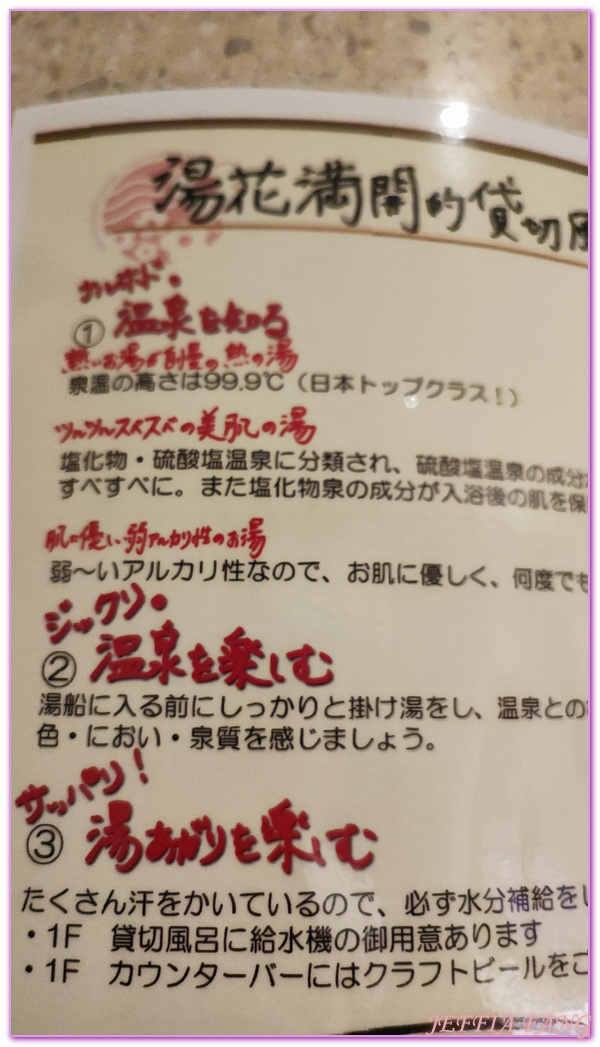 湯花満開的貸切風
ナルホド・
① 温泉を知る
熱いお湯が自慢の熱の湯
泉温の高さは99.9℃（日本トップクラス！）
ツルツルスベスベの美肌の湯
塩化物・硫酸塩温泉に分類され、硫酸塩温泉の成分
すべすべに。また塩化物泉の成分が入浴後の肌を保
肌に優しい弱アルカリ性のお湯
弱～いアルカリ性なので、お肌に優しく、何度でも
ジックリ・
② 温泉を楽しむ
湯船に入る前にしっかりと掛け湯をし、温泉との
色・におい・泉質を感じましょう。
サッパリ！
③ 湯あがりを楽しむ
たくさん汗をかいているので、必ず水分補給をし
・1F 貸切風呂に給水機の御用意あります
・1F カウンターバーにはクラフトビールをご
JEFFIA FANG